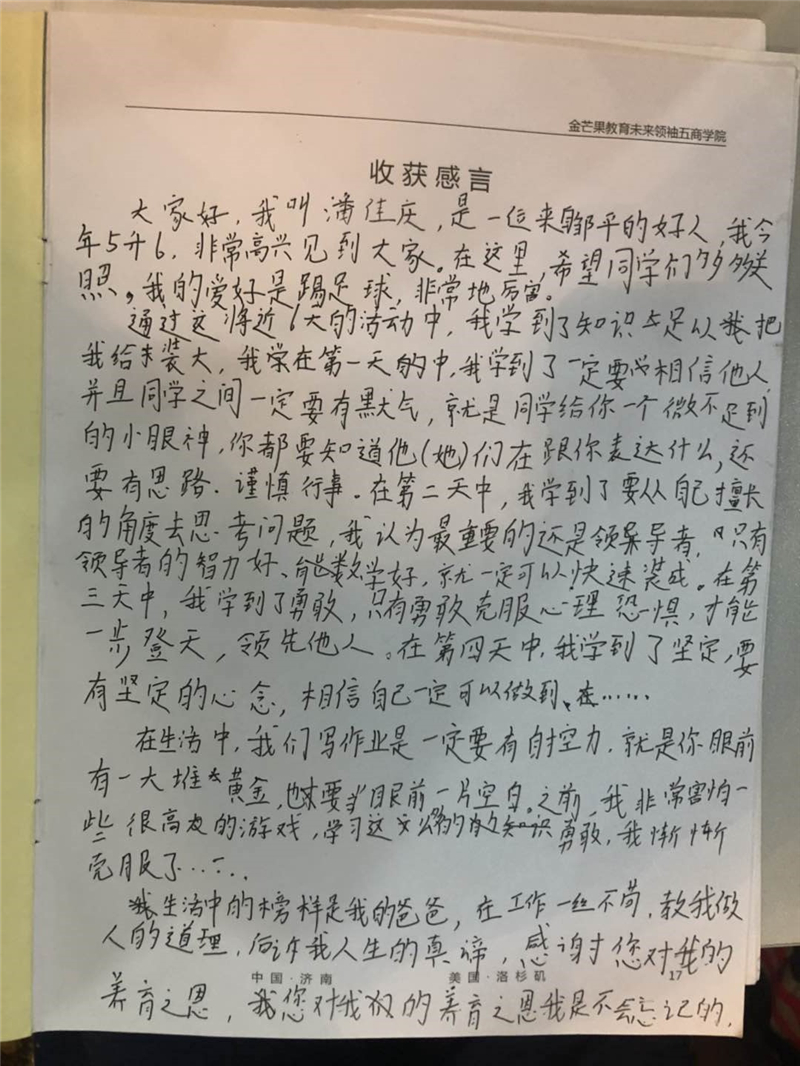 金芒果教育未来领袖五商学院
收获感言
大家好，我叫潘佳庆，是一位来自邹平的好人，我今
年5升6，非常高兴见到大家。在这里，希望同学们多多关
照。我的爱好是踢足球，非常地厉害。
通过这将近6天的活动中，我学到了知识足以我把
我给未装大，我学在第一天的中，我学到了一定要相信他人，
并且同学之间一定要有默气，就是同学给你一个微不足到
的小眼神，你都要知道他（她）们在跟你表达什么，还
要有思路．谨慎行事。在第二天中，我学到了要从自己擅长
的角度去思考问题，我认为最重要的还是领导者，只有
领导者的智力好、能数学好，就一定可以快速装成。在第
三天中，我学到了勇敢，只有勇敢克服心理恐惧，才能
一步登天，领先他人。在第四天中，我学到了坚定，要
有坚定的心念，相信自己一定可以做到、在……
在生活中，我们写作业是一定要有自控力，就是你眼前
有一大堆黄金，也要当眼前一片空白。之前，我非常害怕一
些很高的游戏，学习这勇敢，我惭惭
克服了……
我生活中的榜样是我的爸爸，在工作一丝不苟，教我做
人的道理，我人生的真谛，感谢您对我的
中国·济南 美国·洛杉矶 17
养育之恩，我您对我的养育之恩我是不会忘记的，